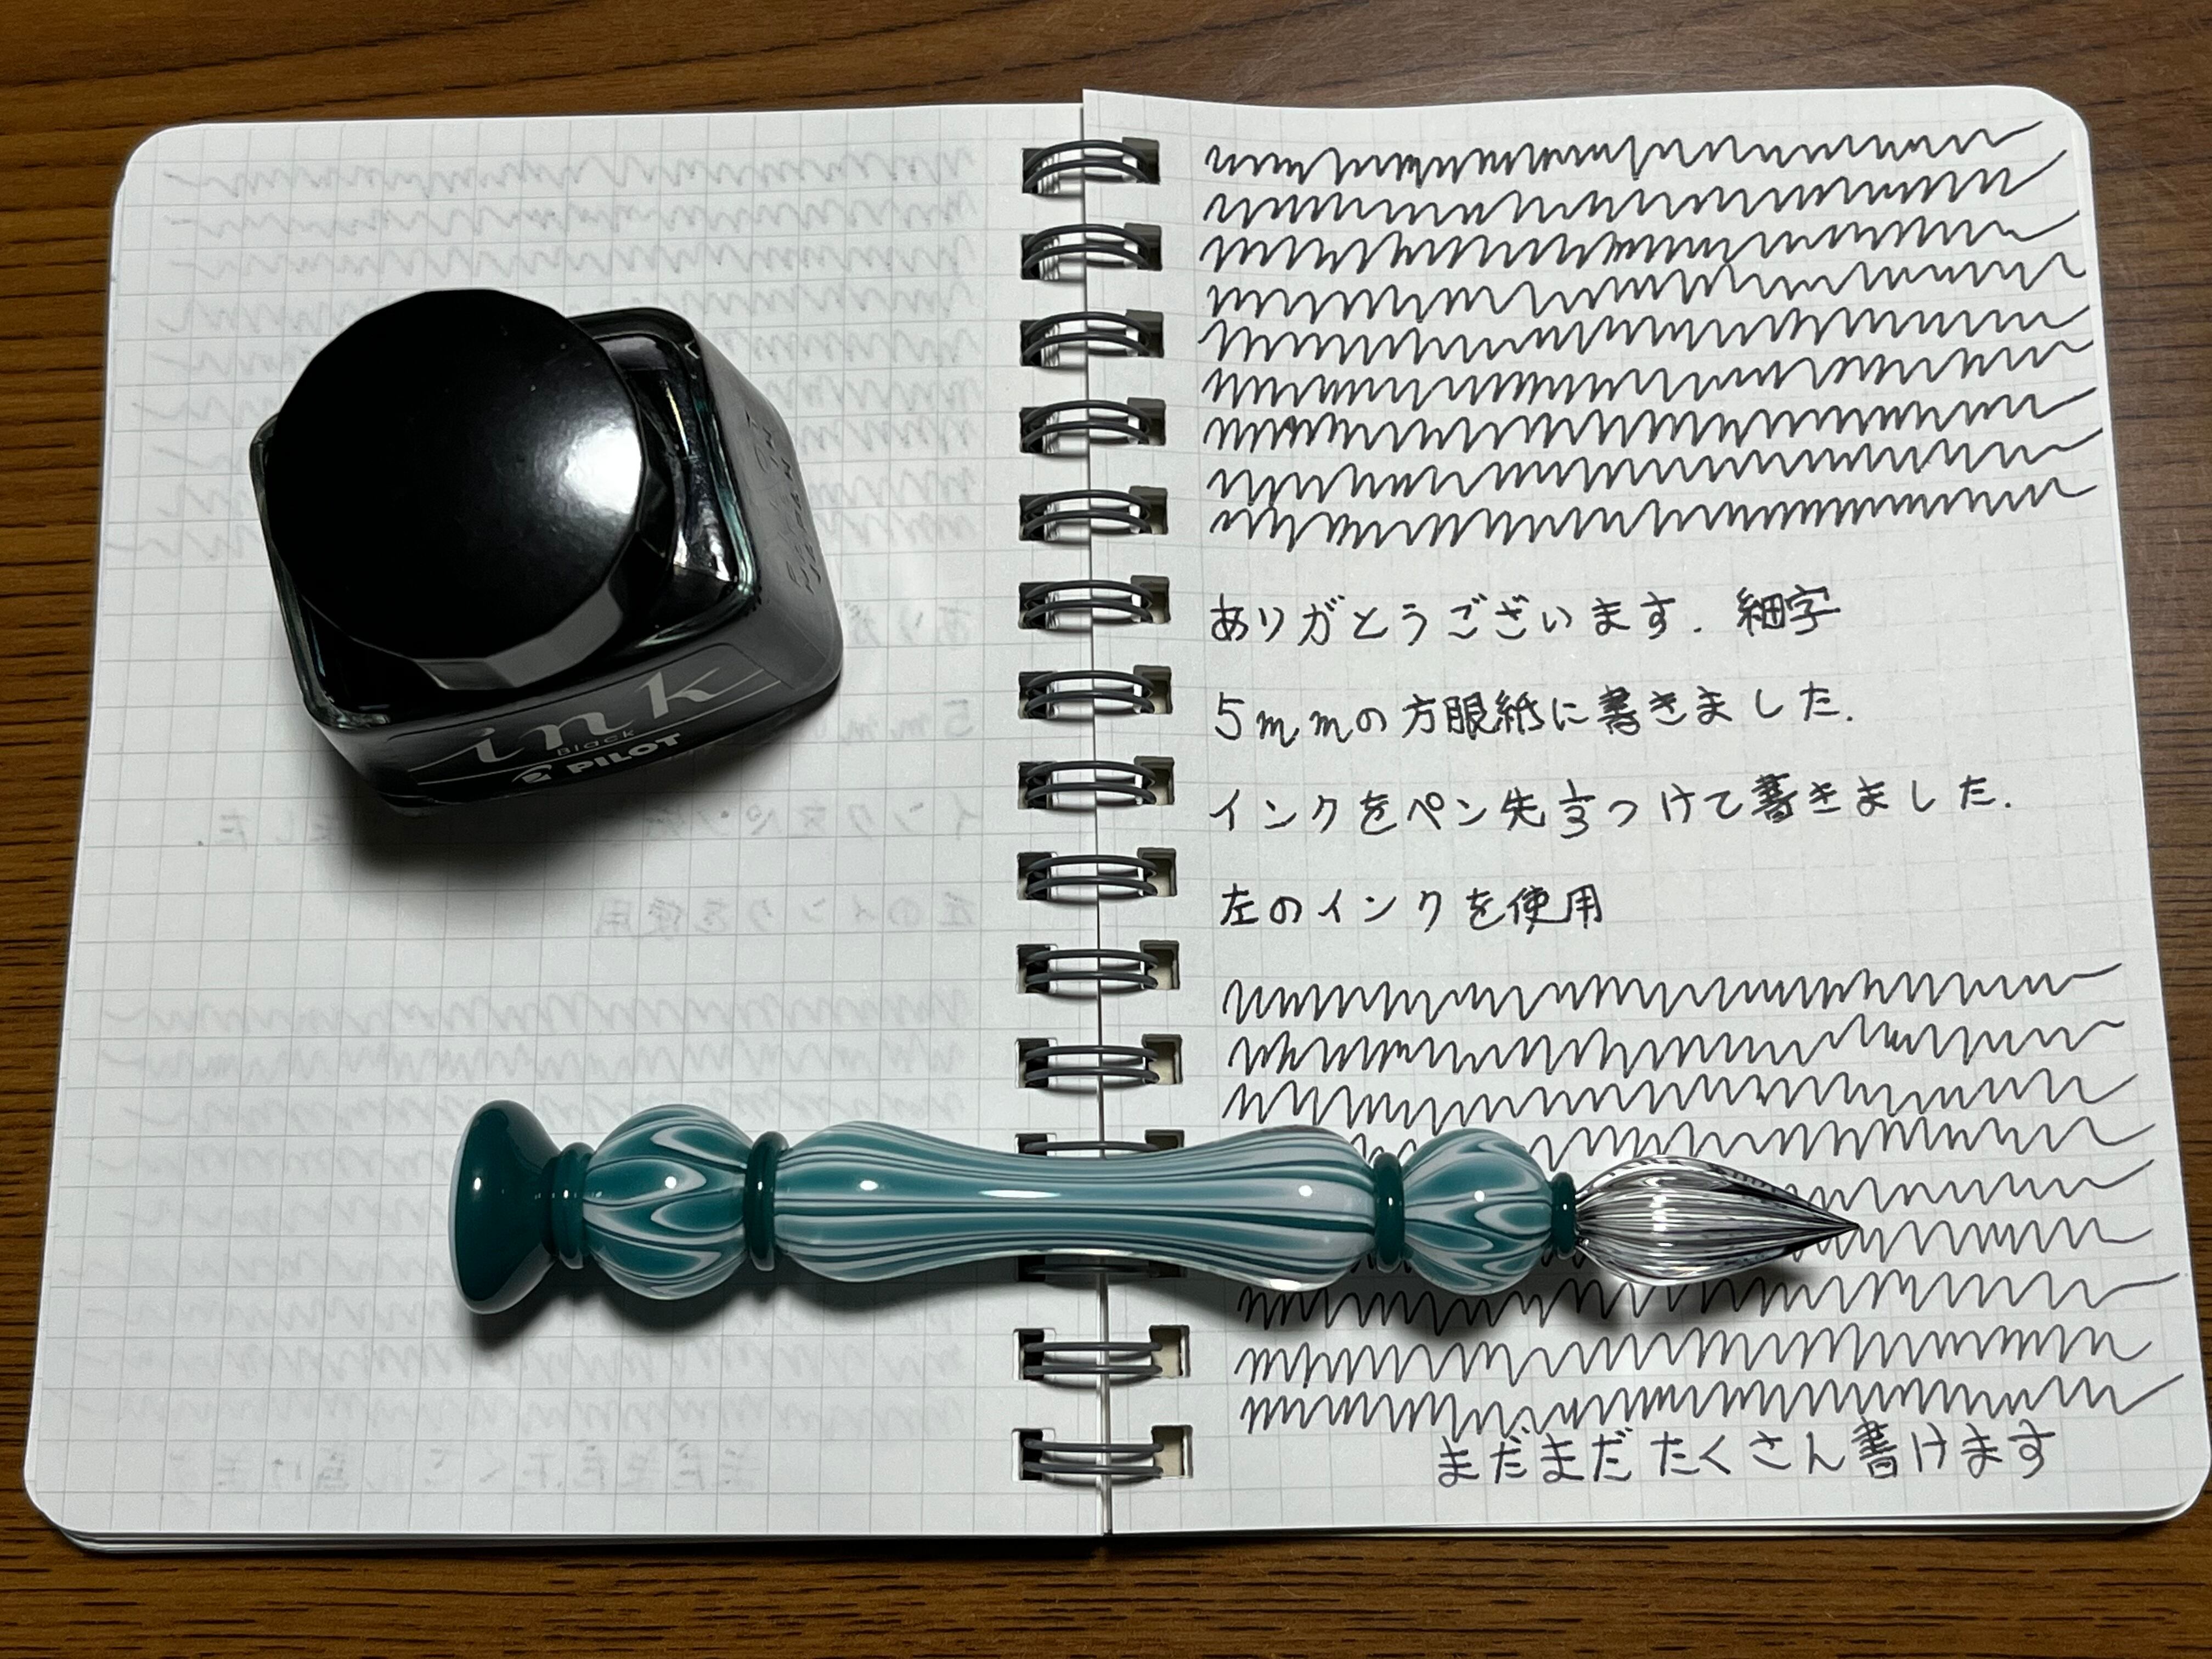 ink
Black
PILOT
ありがとうございます. 細字
5mmの方眼紙に書きました.
インクをペン先つけて書きました.
左のインクを使用
まだまだたくさん書けます